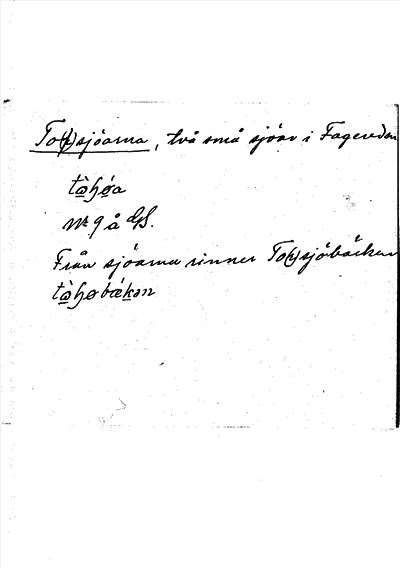 To(k)sjöarna, två små sjöar i Fagereden
tòɧǿa
nr. 9 å GS.
Från sjöarna rinner To(k)sjöbäcken
tòɧøbǽkən